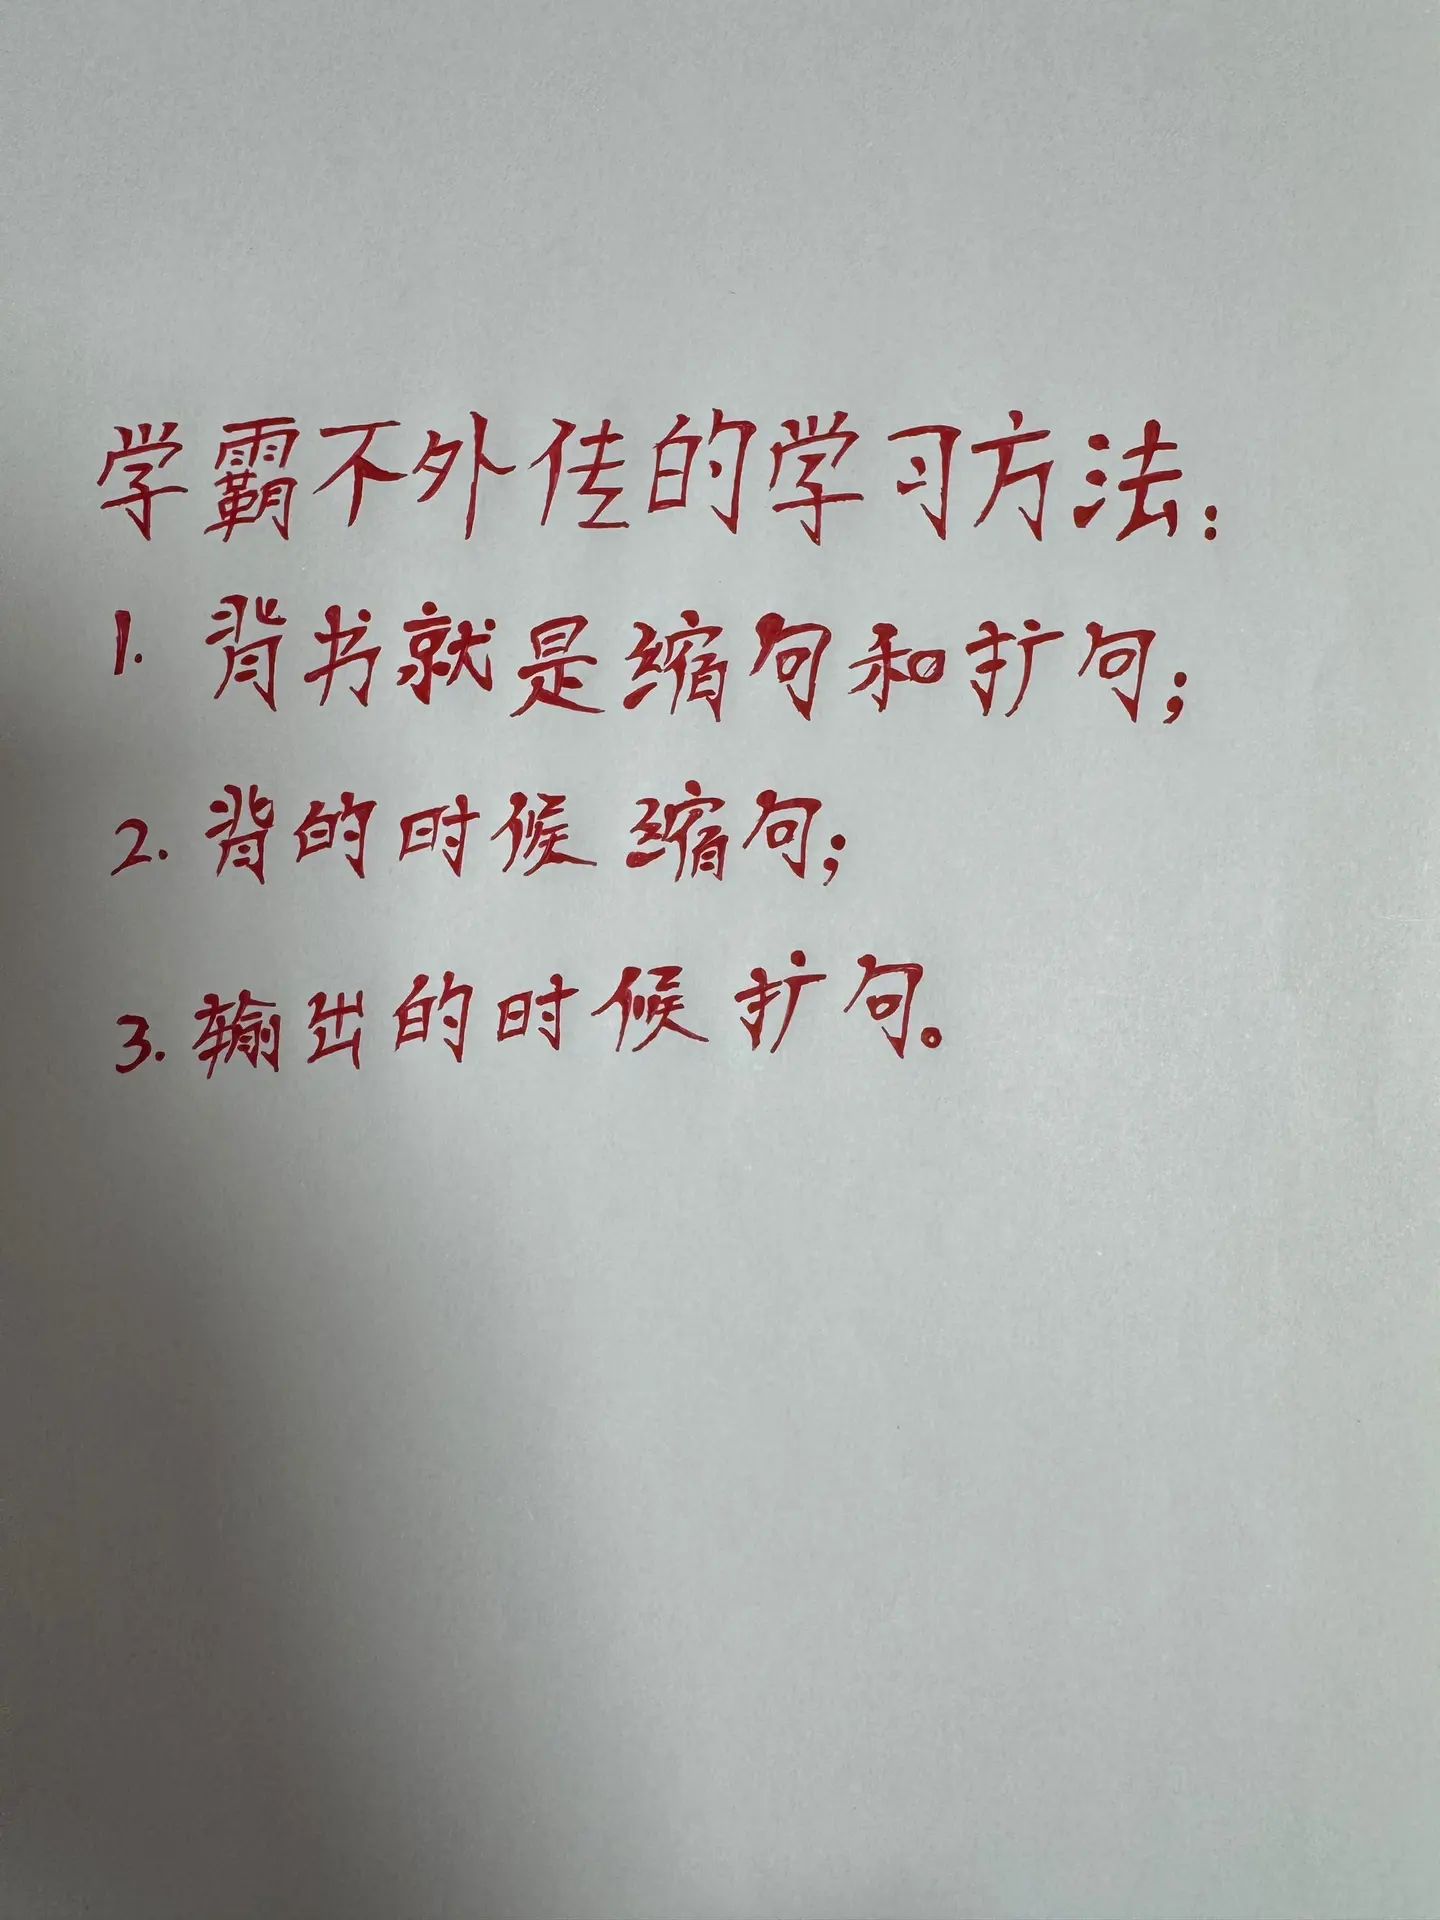 学霸不外传的学习方法:
1. 背书就是缩句和扩句;
2. 背的时候 缩句;
3. 输出的时候 扩句。